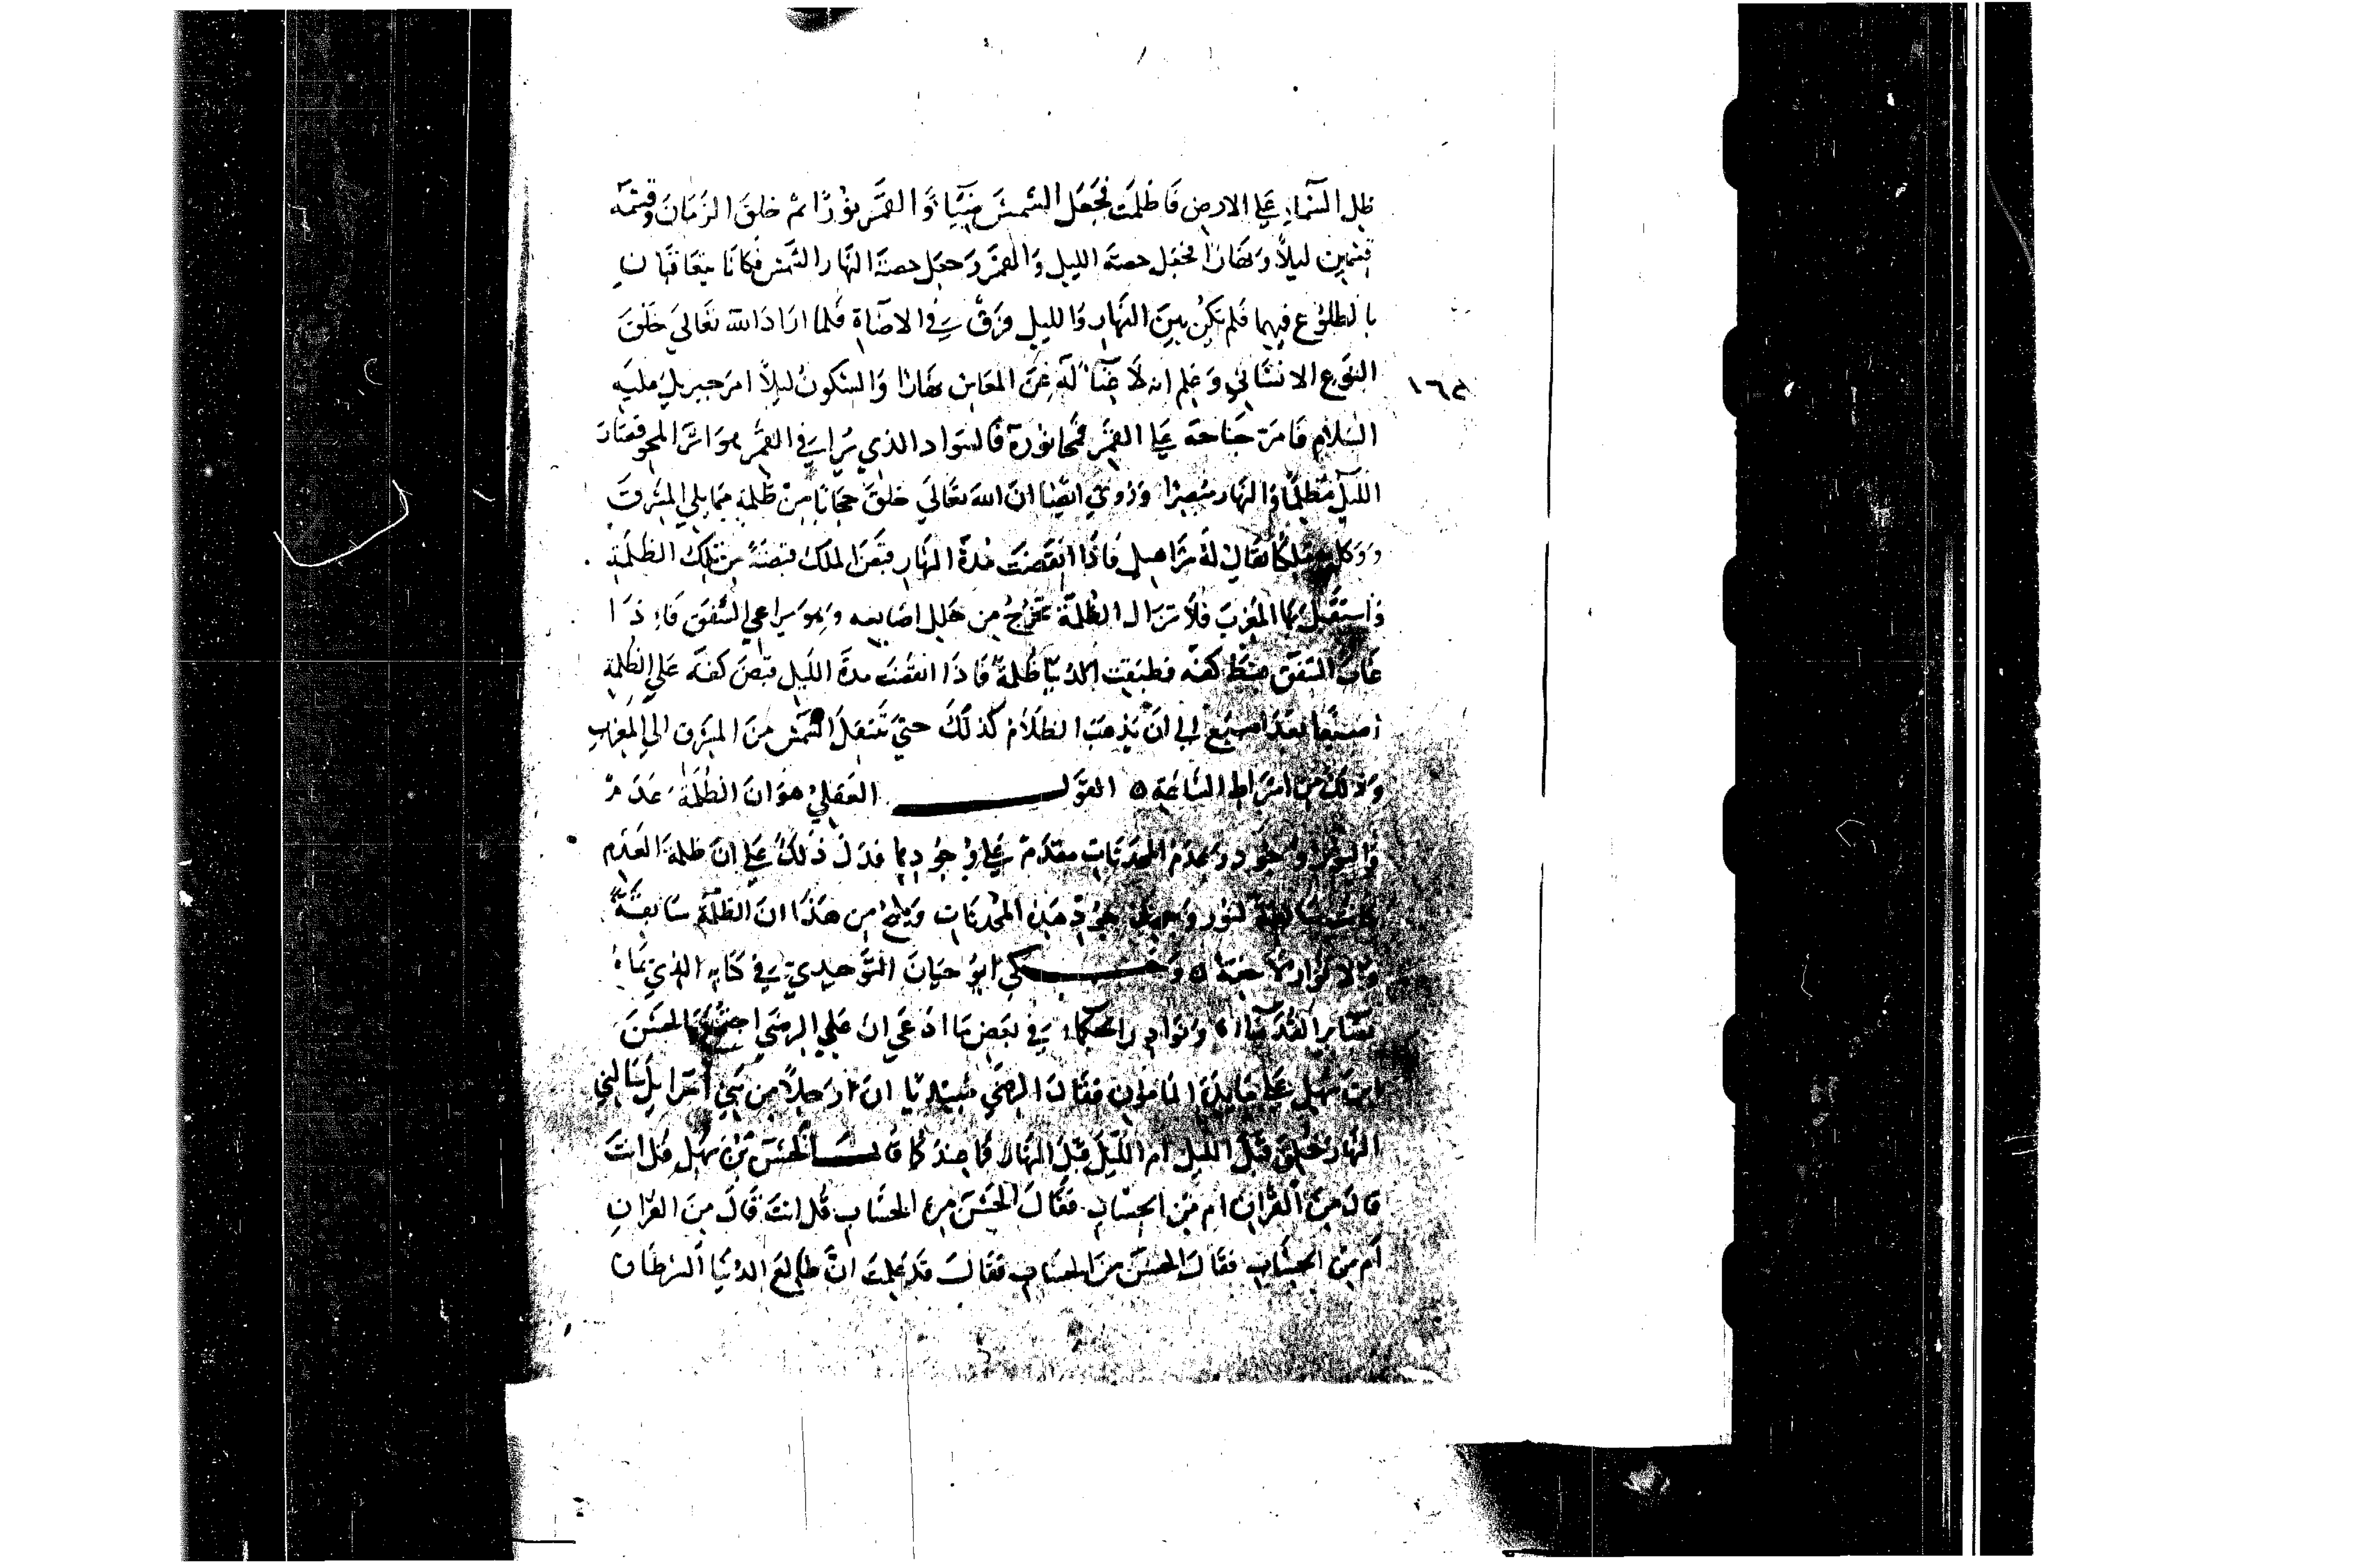 ظل السماء على الارض فاظلمت فجعل الشمس ضياء والقمر نورا ثم خلق الزمان وقسمه
قسمين ليلا ونهارا فجعل حصة الليل والقمر وجعل حصة النهار الشمس فكانا يتعاقبان
بالطلوع فيهما فلم يكن بين النهار والليل فرق في الاضاة فلما اراد الله تعالى خلق
النوع الانساني وعلم انه لا غناء له عن المعاش نهارا والسكون ليلا امر جبريل عليه
١٦٥
السلام فامر جناحه على القمر فمحا نوره فالسواد الذي يرا في القمر هو اثر المحو فصار
الليل مظلما والنهار مبصرا وروي ايضا ان الله تعالى خلق حجابا من ظلمة مما يلي المشرق
ووكل ملكا يقال له شراهيل فاذا انقضت مدة النهار قبض الملك قبضة من تلك الظلمة
واستقبل بها المغرب فلا تزال الظلمة تخرج من خلل اصابعه وهو يراعي الشفق فاذا
غاب الشفق بسط كفه فطبقت الدنيا ظلمة فاذا انقضت مدة الليل قبض كفه على الظلمة
اصبعا بعد اصبع الى ان يذهب الظلام كذلك حتى تنتقل الشمس من المشرق الى المغرب
وذلك من اشراط الساعة ه القول العقلي هو ان الظلمة عدم
والنور وجود وعدم المحدثات مقدم على وجودها فدل ذلك على ان ظلمة العدم
كانت سابقة لنور وجود هذه المحدثات من هذا ان الظلمة سابقة
والانوار لاحقة ه وحكى ابو حيان التوحيدي في كتابه الذي سماه
بصائر القدماء ونوادر الحكماء في بعض ما ادعى ان علي الرضي اجتمع الحسن
ابن سهل على مايدة المامون فقال الرضي مبتديا ان رجلا من بني اسرايل سالني
النهار خلق قبل الليل ام الليل قبل النهار فما عندكما قال الحسن بن سهل قل انت
قال من القران ام من الحساب فقال الحسن من الحساب قل انت قال من القران
ام من الحساب فقال الحسن من الحساب فقال قد علمت ان طالع الدنيا السرطان